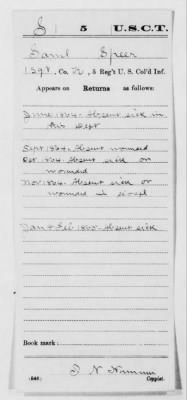 S 5 U.S.C.T.
Saml Speer
1 Sgt, Co. , 5 Reg't U.S. Col'd Inf.
Appears on Returns as follows:
June 1864. Absent sick in
this Dept
Sept 1864. Absent wounded
Oct 1864. Absent sick or
wounded
Nov 1864. Absent sick or
wounded
Jan & Feb 1865. Absent sick
Book mark:
(546) Copyist.